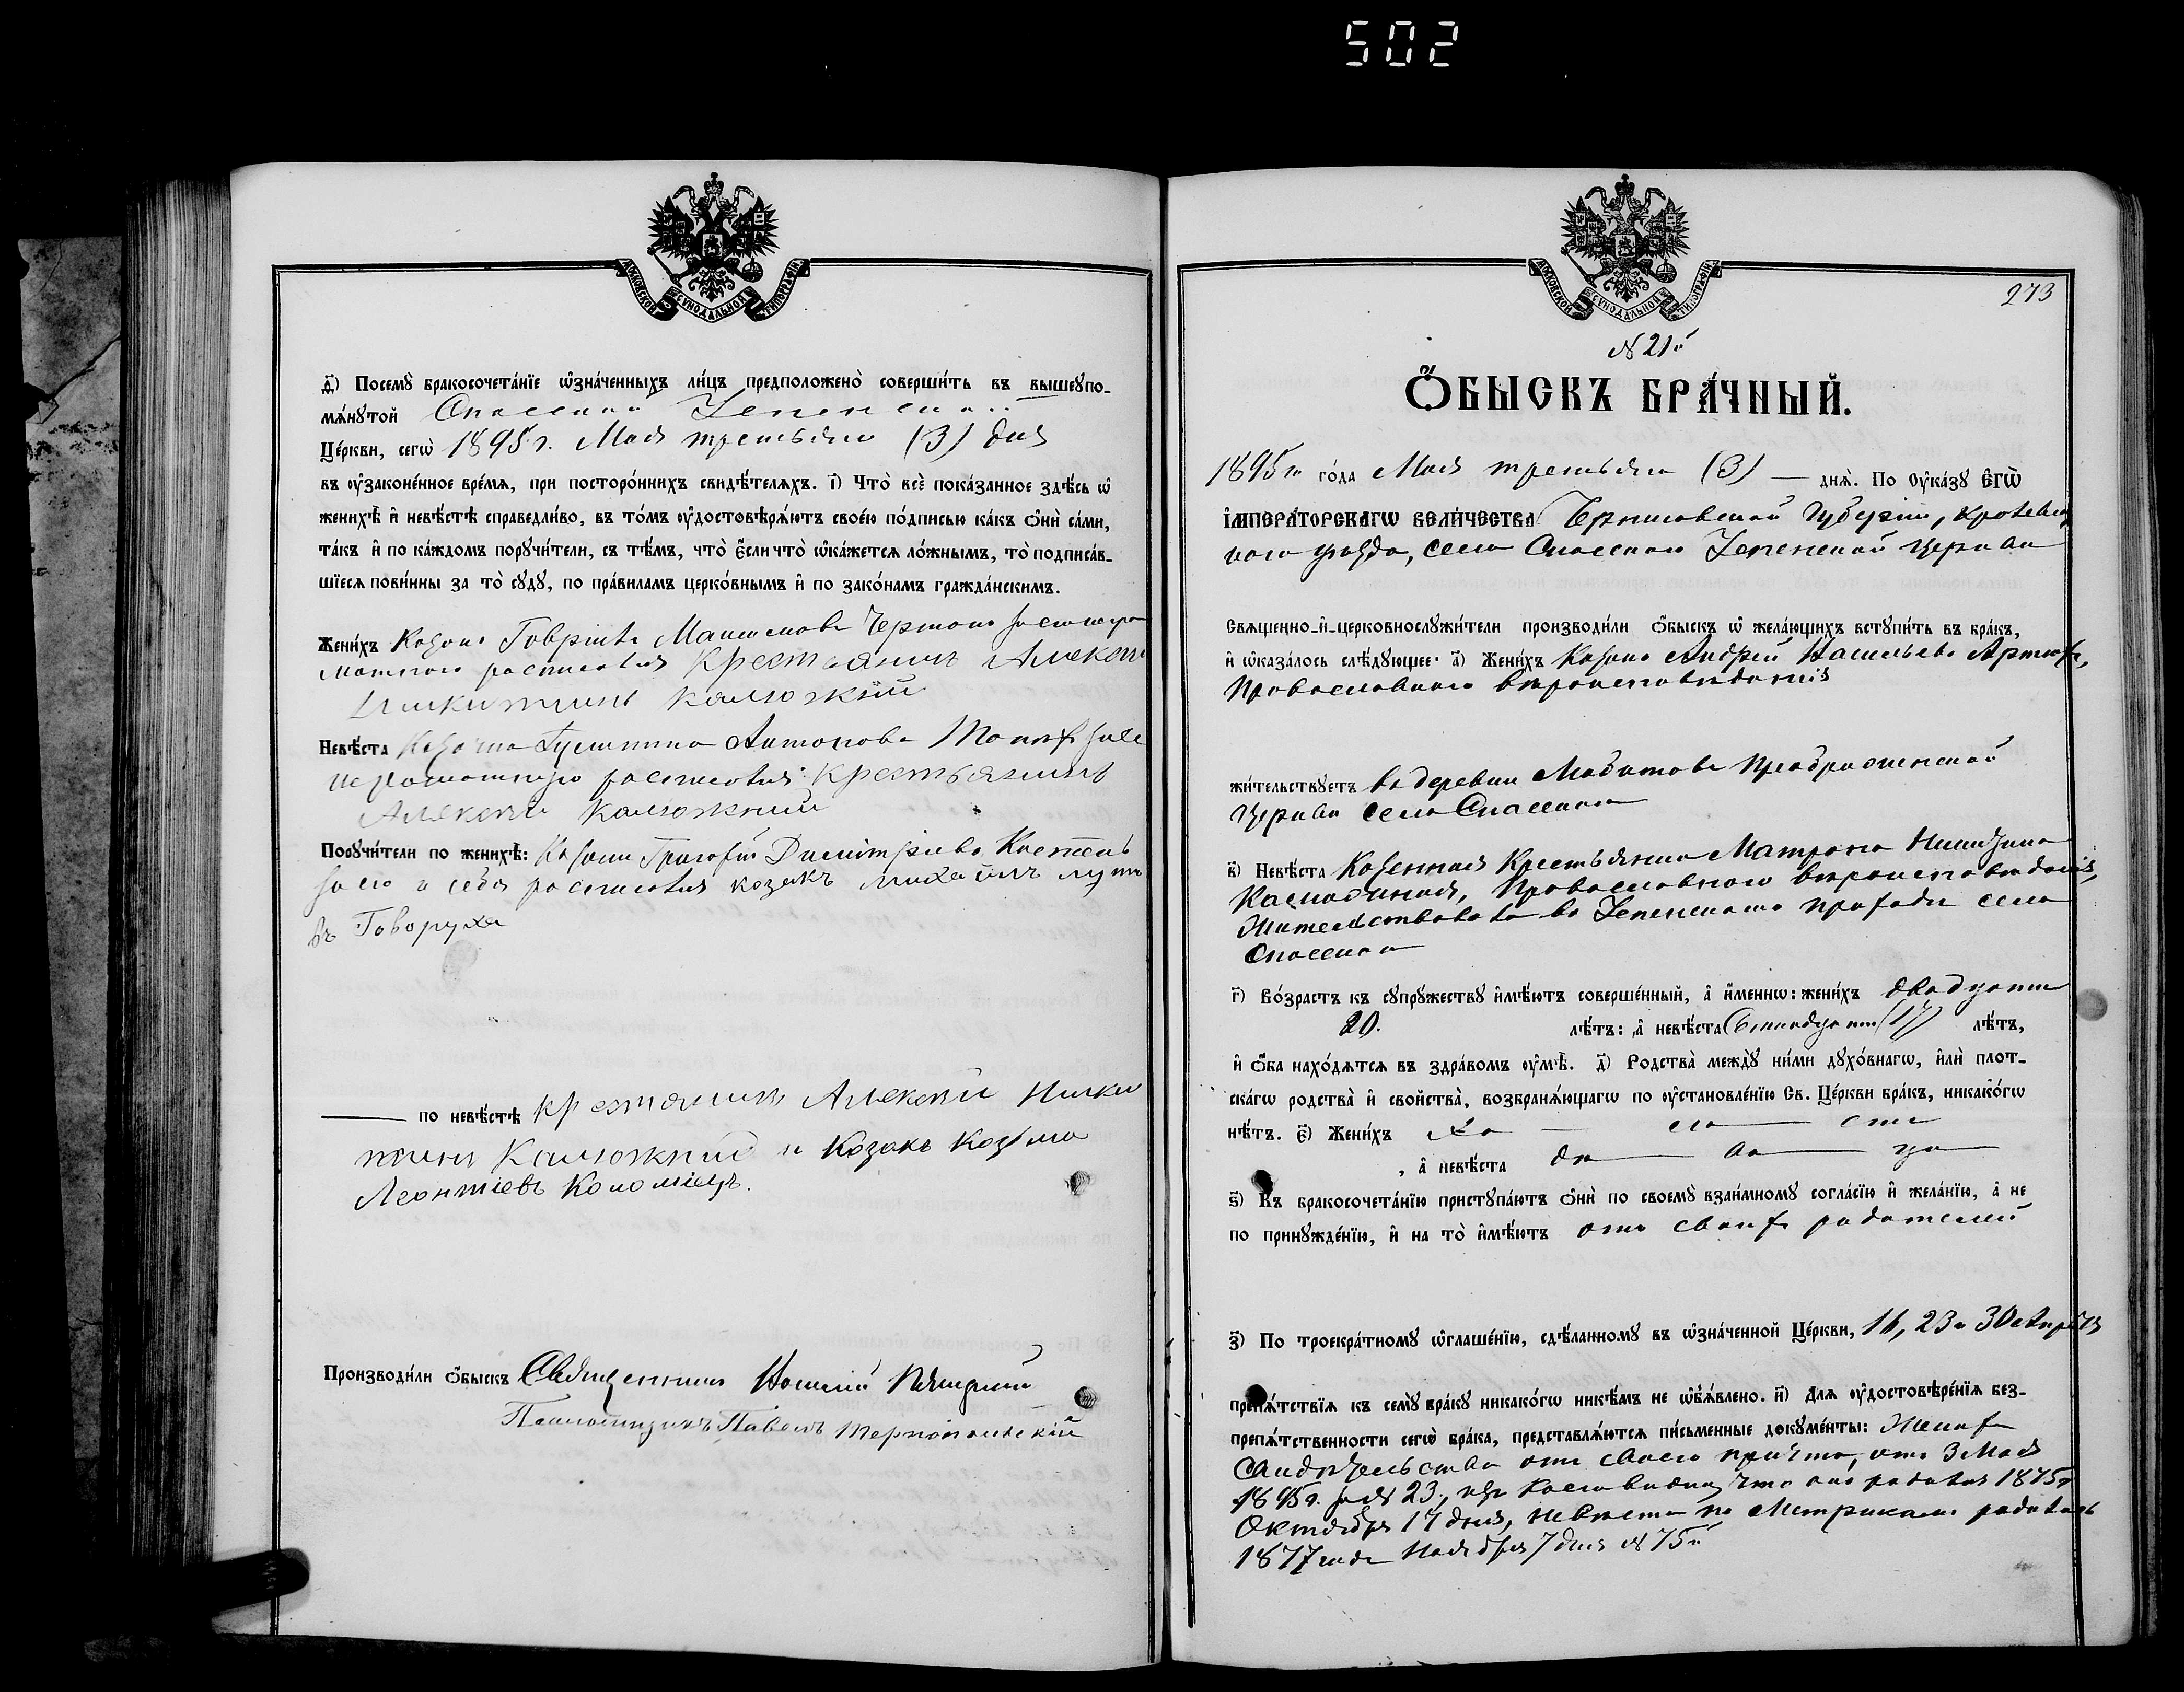 502
МОСКОВСКОЙ СУНОДАЛЬНОЙ ТИПОГРАФІИ
д҃) Посемꙋ̀ бракосочета́нїе ѡ҆зна́ченныхъ ли́цъ предположено̀ соверши́ть въ вышеꙋпо-
мѧ́нꙋтой Спасской
Це́ркви, сегѡ̀ 1895 г. Мая третьяго (3) дня
въ ᲂу҆законе́нное вре́мѧ, при посторо́ннихъ свидѣ́телѧхъ. і҃) Что̀ всѐ пока́занное здѣ́сь ѡ҆
женихѣ̀ и҆ невѣ́стѣ справедли́во, въ то́мъ ᲂу҆достовѣрѧ́ютъ свое́ю по́дписью ка́къ ѻ҆нѝ са́ми,
та́къ и҆ по ка́ждомъ порꙋчи́тели, съ тѣ́мъ, что̀ є҆́сли что̀ ѡ҆ка́жетсѧ ло́жнымъ, то̀ подписа́в-
шїесѧ пови́нны за то̀ сꙋдꙋ̀, по пра́виламъ церко́внымъ и҆ по зако́намъ гражда́нскимъ.
Жени́хъ Козакъ
росписался Крестьянинъ Алексѣй
Никитинъ Калюжнїй
Невѣ́ста Антонова
неграмотную росписался крестьянинъ
Алексѣй Калюжний
Порꙋчи́тели по женихѣ̀: Козаки Григорій Димитріевъ Костень
за его и себя росписался козакъ михаилъ лук
въ Говоруха
по невѣ́стѣ крестянинъ Алексѣй Ники
тинъ Калюжний и Козакъ Козьма
Леонтіевъ Коломіецъ.
Производи́ли ѻ҆́быскъ Священникъ
Псаломщикъ Павелъ Тернопольскій
МОСКОВСКОЙ СУНОДАЛЬНОЙ ТИПОГРАФІИ
273
№ 21й
Ѻ҆́БЫСКЪ БРА́ЧНЫЙ.
1895 го го́да Мая третьяго (3) — днѧ̀. По ᲂу҆ка́зꙋ Є҆ГѠ̀
І҆МПЕРА́ТОРСКАГѠ ВЕЛИ́ЧЕСТВА Черниговской Губерніи, Кролевец
каго уѣзда, села Спасскаго церкви
Сващенно-и҆-церковнослꙋжи́тели производи́ли ѻ҆́быскъ ѡ҆ жела́ющихъ встꙋпи́ть въ бра́къ,
и҆ ѡ҆каза́лось слѣ́дꙋющее: а҃) Жени́хъ Козакъ Андрей Васильевъ Артюх,
Православнаго вѣроисповѣданія
жи́тельствꙋетъ въ деревни Преображенской
Церкви села Спасскаго
в҃) Невѣ́ста Козенная Крестьянка Матрона Никитина
Православнаго вѣроисповѣданія,
Жительствовала въ приходѣ села
Спасскаго
г҃) Во́зрастъ къ сꙋпрꙋ́жествꙋ и҆мѣ́ютъ соверше́нный, а҆ и҆́менно: жени́хъ двадцати
20. лѣ́тъ: а҆ невѣ́ста Семнадцати (17) лѣ́тъ,
и҆ ѻ҆́ба нахо́дѧтсѧ въ здра́вомъ ᲂу҆мѣ̀. д҃) Родства̀ междꙋ̀ ни́ми дꙋхо́внагѡ, и҆лѝ плот-
ска́гѡ родства̀ и҆ свойства̀, возбранѧ́ющагѡ по ᲂу҆становле́нїю Св. Це́ркви бра́къ, никако́гѡ
нѣ́тъ. є҃) Жени́хъ хо — ло — стъ
, а҆ невѣ́ста дѣ — ви — ца
ѕ҃) Къ бракосочета́нїю пристꙋпа́ютъ ѻ҆нѝ по своемꙋ̀ взаи́мномꙋ согла́сїю и҆ жела́нїю, а҆ не
по принꙋжде́нїю, и҆ на то̀ и҆мѣ́ютъ отъ своихъ родителей
з҃) По троекра́тномꙋ ѡ҆глаше́нїю, сдѣ́ланномꙋ въ ѡ҆зна́ченной Це́ркви, 16, 23 и 30 Апрѣля
препѧ́тствїѧ къ семꙋ̀ бра́кꙋ никако́гѡ никѣ́мъ не ѡ҆б̾ѧ́влено. и҃) Длѧ ᲂу҆достовѣре́нїѧ без-
препѧ́тственности сегѡ̀ бра́ка, представлѧ́ютсѧ пи́сьменные докꙋме́нты: Жених
Свидѣтельство отъ своего причта, отъ 3 Мая
1895 г. за № 23, изъ коего видно, что онъ родился 1875 г
Октября 17 дня, невѣста по Метрикамъ родилась
1877 года Ноября 7 дня № 75й